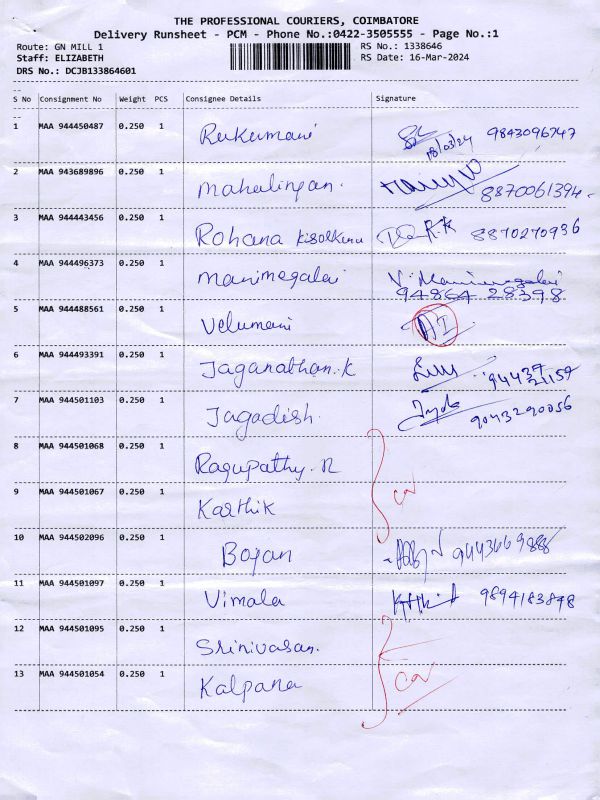 THE PROFESSIONAL COURIERS, COIMBATORE
Delivery Runsheet - PCM - Phone No.:0422-3505555 - Page No.:1
Route: GN MILL 1 RS No.: 1338646
Staff: ELIZABETH RS Date: 16-Mar-2024
DRS No.: DCJB133864601
S No Consignment No Weight PCS Consignee Details Signature
1 MAA 944450487 0.250 1 Rukumani 9843096747
18/03/24
2 MAA 943689896 0.250 1 Mahalingan. 8870061394-
3 MAA 944443456 0.250 1 Rohana R.K 8870270936
4 MAA 944496373 0.250 1 Manimegalai V. Manimegalai
94864 28398
5 MAA 944488561 0.250 1 Velumani
6 MAA 944493391 0.250 1 Jaganathan.K 94437
21159
7 MAA 944501103 0.250 1 Jagadish. 9043290056
8 MAA 944501068 0.250 1 Ragupathy.R
9 MAA 944501067 0.250 1 Karthik
10 MAA 944502096 0.250 1 Boyan 9443669888
11 MAA 944501097 0.250 1 Vimala 9894183898
12 MAA 944501095 0.250 1 Srinivasan.
13 MAA 944501054 0.250 1 Kalpana